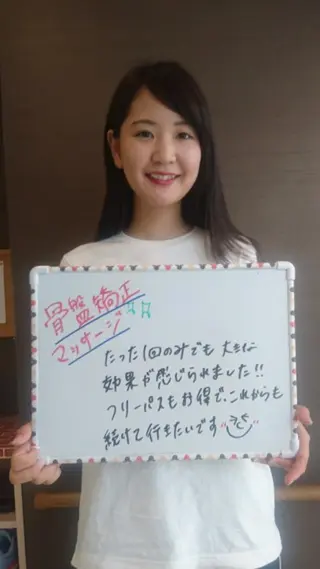 骨盤矯正
マッサージ
たった1回のみでも大きな
効果が感じられました!!
フリーパスもお得で、これからも
続けて行きたいです